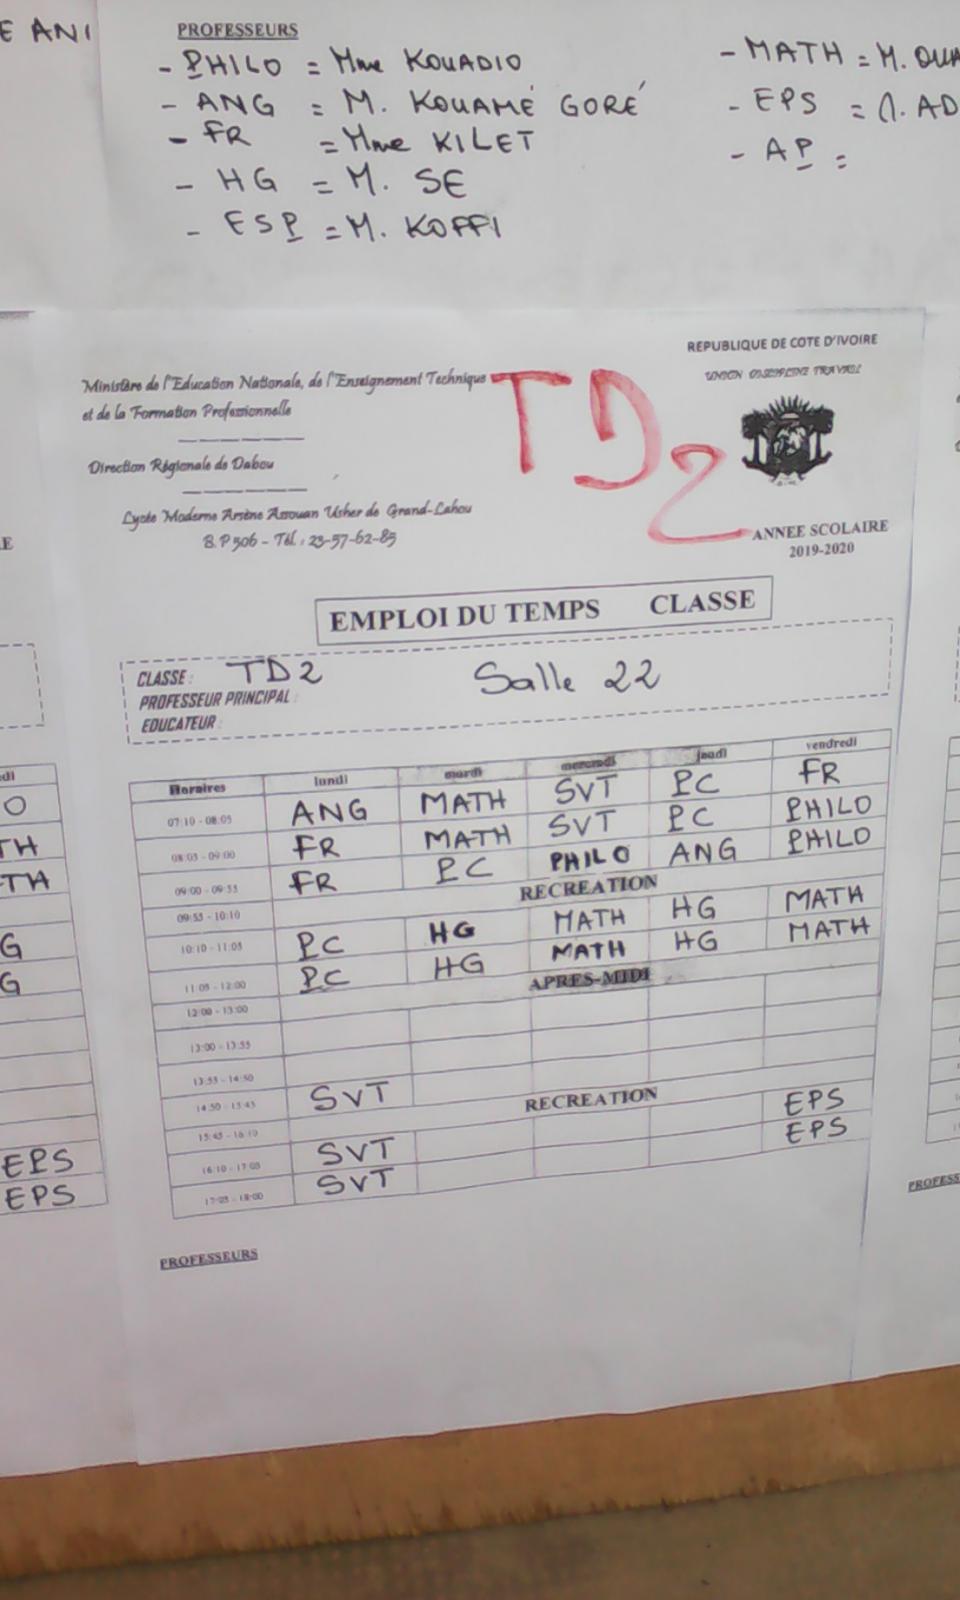 E ANI
PROFESSEURS
- PHILO = Mme KOUADIO
- ANG = M. KOUAMÉ GORÉ
- FR = Mme KILET
- HG = M. SE
- ESP = M. KOFFI
- MATH = M. OUA
- EPS = M. AD
- AP =
REPUBLIQUE DE COTE D'IVOIRE
UNION DISCIPLINE TRAVAIL
Ministère de l'Education Nationale, de l'Enseignement Technique
et de la Formation Professionnelle
TD2
Direction Régionale de Dabou
Lycée Moderne Arsène Assouan Usher de Grand-Lahou
B.P 506 - Tél. : 23-57-62-85
ANNEE SCOLAIRE
2019-2020
EMPLOI DU TEMPS CLASSE
CLASSE : TD2 Salle 22
PROFESSEUR PRINCIPAL :
EDUCATEUR :
Horaires lundi mardi mercredi jeudi vendredi
07:10 - 08:05 ANG MATH SVT PC FR
08:05 - 09:00 FR MATH SVT PC PHILO
09:00 - 09:55 FR PC PHILO ANG PHILO
09:55 - 10:10 RECREATION
10:10 - 11:05 PC HG MATH HG MATH
11:05 - 12:00 PC HG MATH HG MATH
12:00 - 13:00 APRES-MIDI
13:00 - 13:55
13:55 - 14:50
14:50 - 15:45 SVT
15:45 - 16:10 RECREATION
16:10 - 17:05 SVT EPS
17:05 - 18:00 SVT EPS
PROFESSEURS
di
O
TH
TH
G
G
EPS
EPS
PROFESS